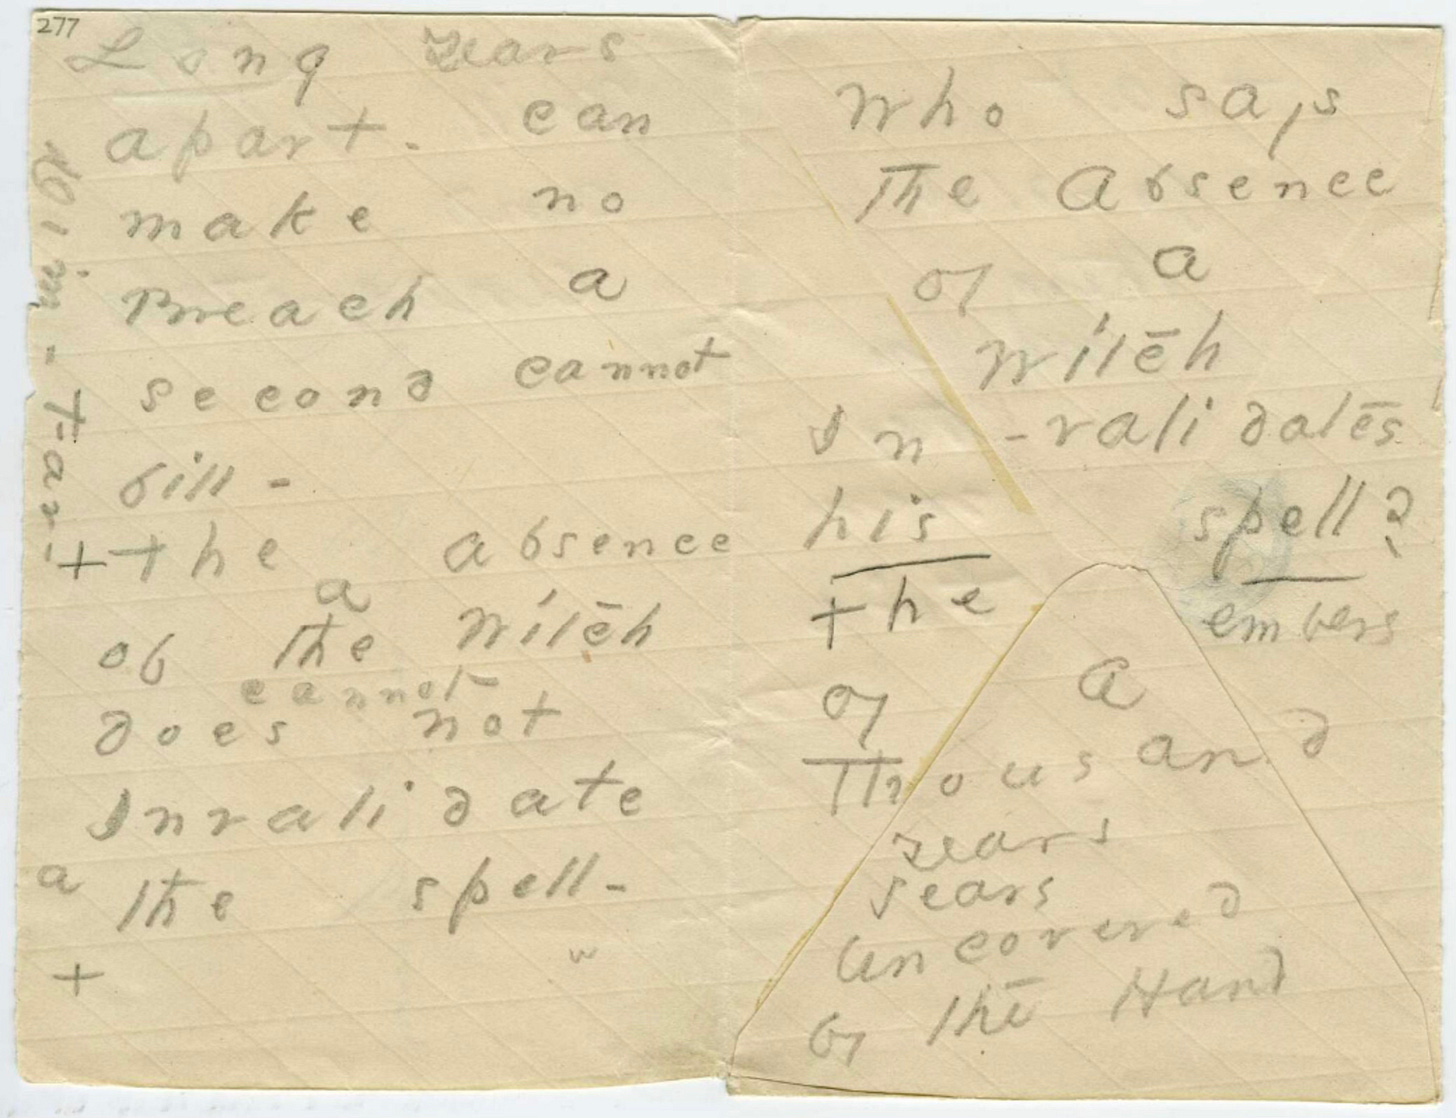 277
Long Years
apart - can
make no
Breach a
second cannot
fill -
+ the absence
a
of the Witch
cannot
does not
Invalidate
a the spell -
+
Who says
The Absence
of a
Witch
In - validates
his spell?
the embers
of a
Thousand
Years
sears
Uncovered
by the Hand